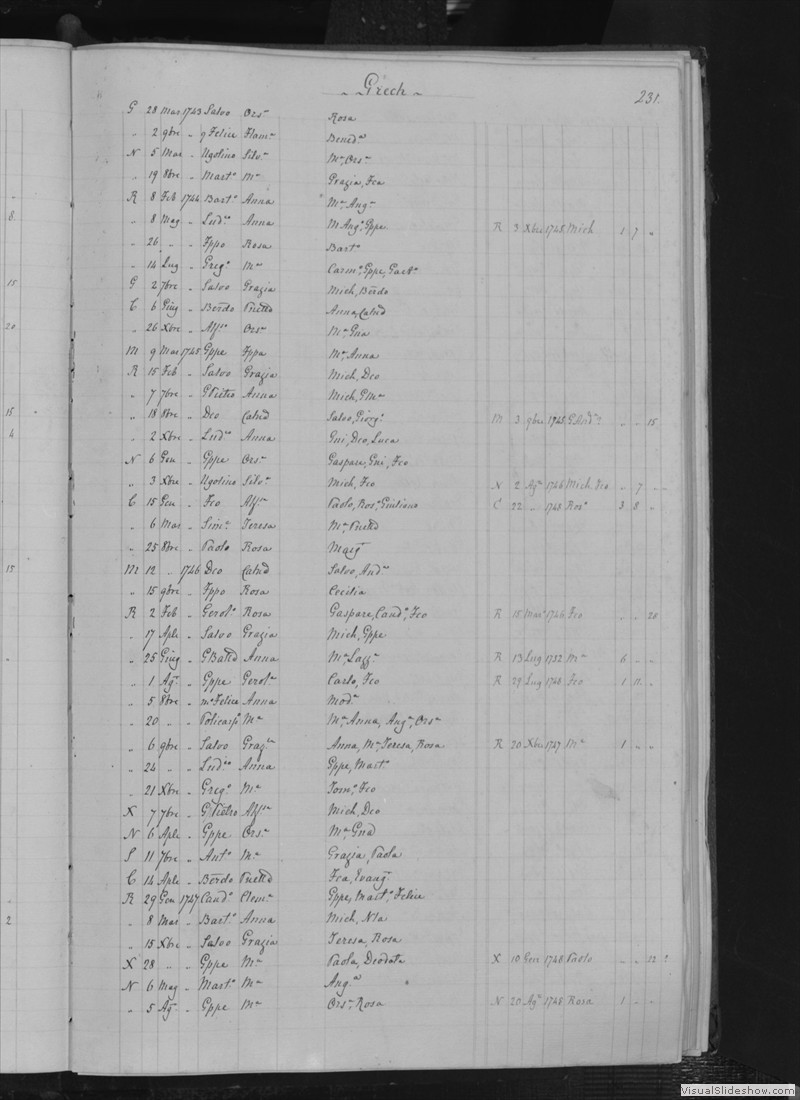 Grech
231.
G 28 Mar 1743 Salvo Ors.a Rosa
" 2 9bre " q Felice Flam.a Bened.a
N 5 Mar " Ugolino Silv.a M.a Ors.a
" 19 8bre " Mart.o M.a Grazia, Fca
R 8 Feb 1744 Bart.o Anna M.a Ang.a
8. " 8 Mag " Lud.co Anna M Ang.a Gppe R 3 Xbre 1748 Mich 1 7 "
" 26 " " Fppo Rosa Bart.o
" 14 Lug " Greg.o M.a Carm.o Gppe, Gaet.o
15 G 2 7bre " Salvo Grazia Mich, Berdo
C 6 Giug " Berdo Anna
20 " 26 Xbre " Alf.o Ors.a M.a Gna
M 9 Mar 1745 Gppe Fppa M.a Anna
R 15 Feb " Salvo Grazia Mich, Deo
" 7 7bre " GPietro Anna Mich, GM.a
15 " 18 8bre " Deo Salvo, Giorg.o M 3 9bre 1745 " " 15
4 " 2 Xbre " Lud.co Anna Gni, Deo, Luca
N 6 Gen " Gppe Ors.a Gaspare, Gni, Fco
" 3 Xbre " Ugolino Silv.a Mich, Fco N 2 Ag.o 1746 Mich Fco " 7 "
C 15 Gen " Fco Alf.a Paolo, Ros.o Giuliano C 22 " 1748 Ros.o 3 8 "
" 6 Mar " Sim.e Teresa M.a
" 25 8bre " Paolo Rosa Marg.
15 M 12 " 1746 Deo Salvo, And.a
" 15 9bre " Fppo Rosa Cecilia
R 2 Feb " Gerol.o Rosa Gaspare, Cand.o, Fco R 15 Mar 1746 Fco " " 20
" 17 Aple " Salvo Grazia Mich, Gppe
" 25 Giug " GBatta Anna M.a Lazz.a R 13 Lug 1752 M.a 6 " "
" 1 Ag.o " Gppe Gerol.a Carlo, Fco R 29 Lug 1748 Fco 1 11 "
" 5 8bre " Felice Anna Mod.a
" 20 " " Policarpo M.a M.a Anna, Ang.a, Ors.a
" 6 9bre " Salvo Graz.a Anna, M.a Teresa, Rosa R 20 Xbre 1747 M.a 1 " "
" 24 " " Lud.co Anna Gppe, Mart.o
" 21 Xbre " Greg.o M.a Tom.o, Fco
X 7 7bre " GPietro Alf.a Mich, Deo
N 6 Aple " Gppe Ors.a M.a
S 11 7bre " Ant.o M.a Grazia, Paola
C 14 Aple " Berdo Fca, Evang.
R 29 Gen 1747 Cand.o Clem.a Gppe, Mart.o, Felice
2 " 8 Mar " Bart.o Anna Mich, Nla
" 15 Xbre " Salvo Grazia Teresa, Rosa
X 28 " " Gppe M.a Paola, Deodata X 10 Gen 1748 Paolo " " 22
N 6 Mag " Mart.o M.a Ang.a
" 5 Ag.o " Gppe M.a Ors.a Rosa N 20 Ag.o 1748 Rosa 1 " "
VisualSlideshow.com